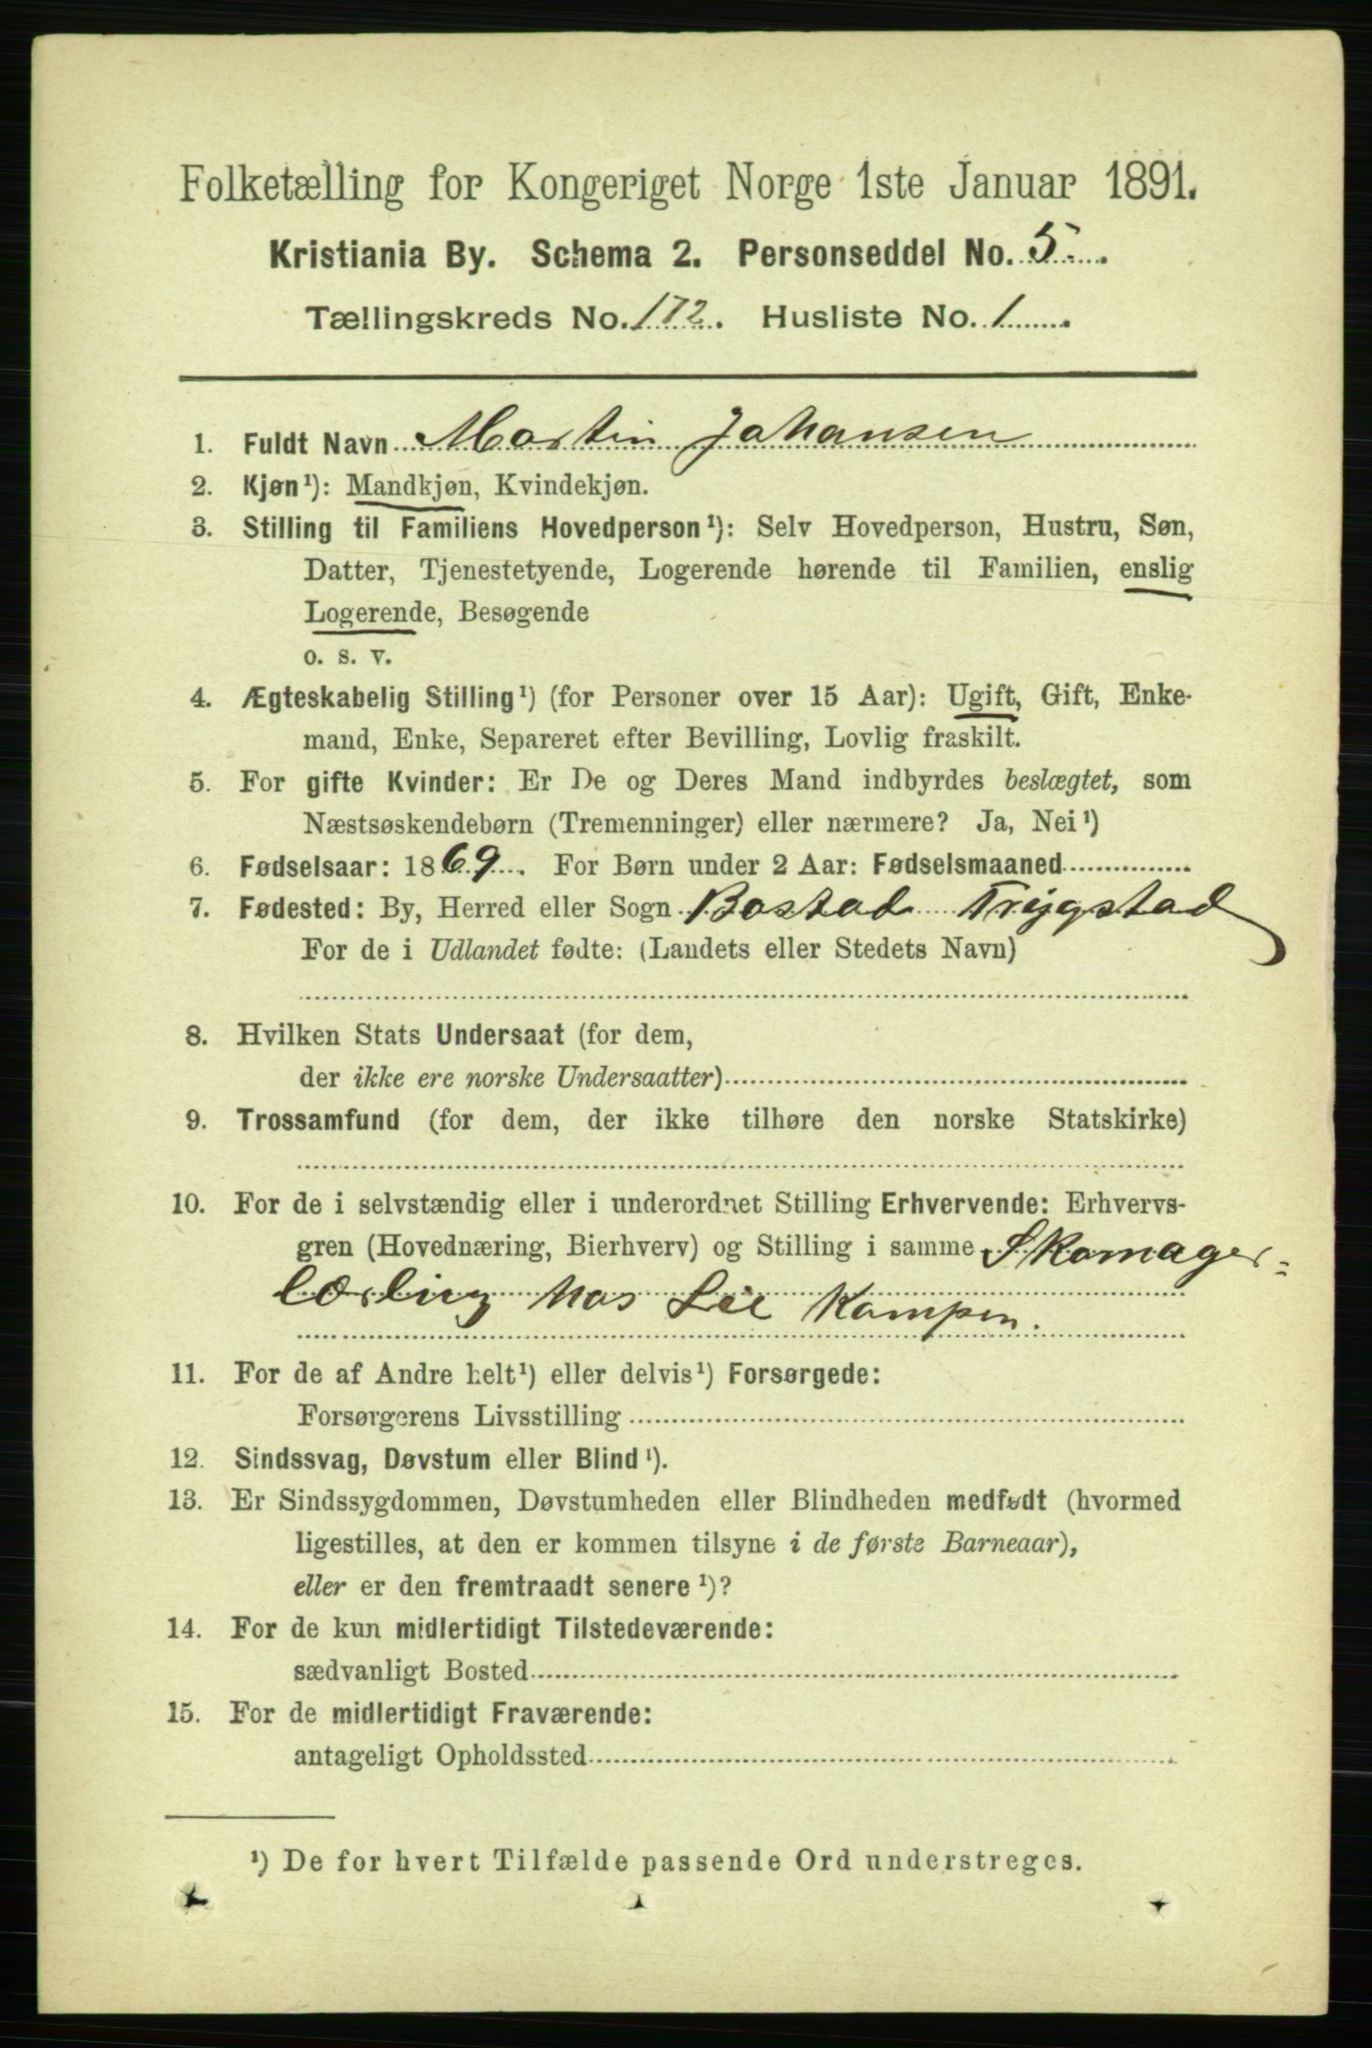 Folketælling for Kongeriget Norge 1ste Januar 1891.
Kristiania By. Schema 2. Personseddel No. 5.
Tællingskreds No. 172. Husliste No. 1.
1. Fuldt Navn Martin Johansen
2. Kjøn¹): Mandkjøn, Kvindekjøn.
3. Stilling til Familiens Hovedperson¹): Selv Hovedperson, Hustru, Søn,
Datter, Tjenestetyende, Logerende hørende til Familien, enslig
Logerende, Besøgende
o. s. v.
4. Ægteskabelig Stilling¹) (for Personer over 15 Aar): Ugift, Gift, Enke-
mand, Enke, Separeret efter Bevilling, Lovlig fraskilt.
5. For gifte Kvinder: Er De og Deres Mand indbyrdes beslægtet, som
Næstsøskendebørn (Tremenninger) eller nærmere? Ja, Nei¹)
6. Fødselsaar: 1869. For Børn under 2 Aar: Fødselsmaaned
7. Fødested: By, Herred eller Sogn Bostad Trygstad
For de i Udlandet fødte: (Landets eller Stedets Navn)
8. Hvilken Stats Undersaat (for dem,
der ikke ere norske Undersaatter)
9. Trossamfund (for dem, der ikke tilhøre den norske Statskirke)
10. For de i selvstændig eller i underordnet Stilling Erhvervende: Erhvervs-
gren (Hovednæring, Bierhverv) og Stilling i samme Skomager-
lærling hos Lie Kampen.
11. For de af Andre helt¹) eller delvis¹) Forsørgede:
Forsørgerens Livsstilling
12. Sindssvag, Døvstum eller Blind¹).
13. Er Sindssygdommen, Døvstumheden eller Blindheden medfødt (hvormed
ligestilles, at den er kommen tilsyne i de første Barneaar),
eller er den fremtraadt senere¹)?
14. For de kun midlertidigt Tilstedeværende:
sædvanligt Bosted
15. For de midlertidigt Fraværende:
antageligt Opholdssted
¹) De for hvert Tilfælde passende Ord understreges.